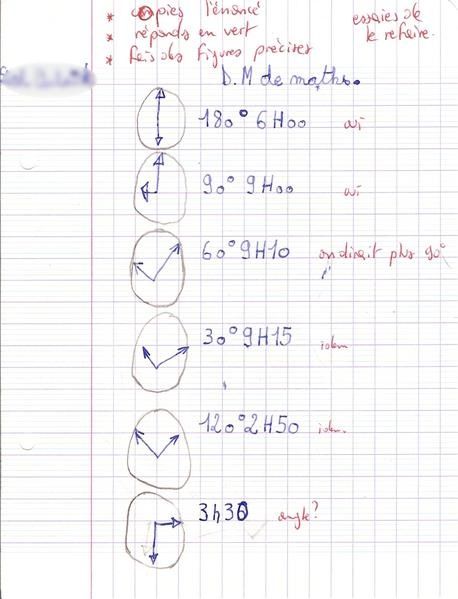 * copies l'énoncé
essaies de
* réponds en vert
le refaire.
* fais des figures précises
D.M de maths.
180° 6H00 oui
90° 9H00 oui
60° 9H10 on dirait plus 90°
30° 9H15 idem
120° 2H50 idem.
3h30 angle?